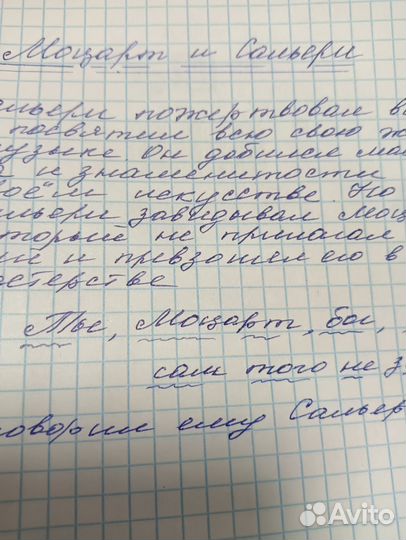 Моцарт и Сальери
ельери пожертвовал в
посвятил всю свою ж
узыке Он добился
и знаменитости
воём искусстве. Но
льери завидывал Моц
оторый не прилагал
ий и превзошел его в
астерстве
Ты, Моцарт, бог,
сам того не з
говорил ему Сальер
Avito